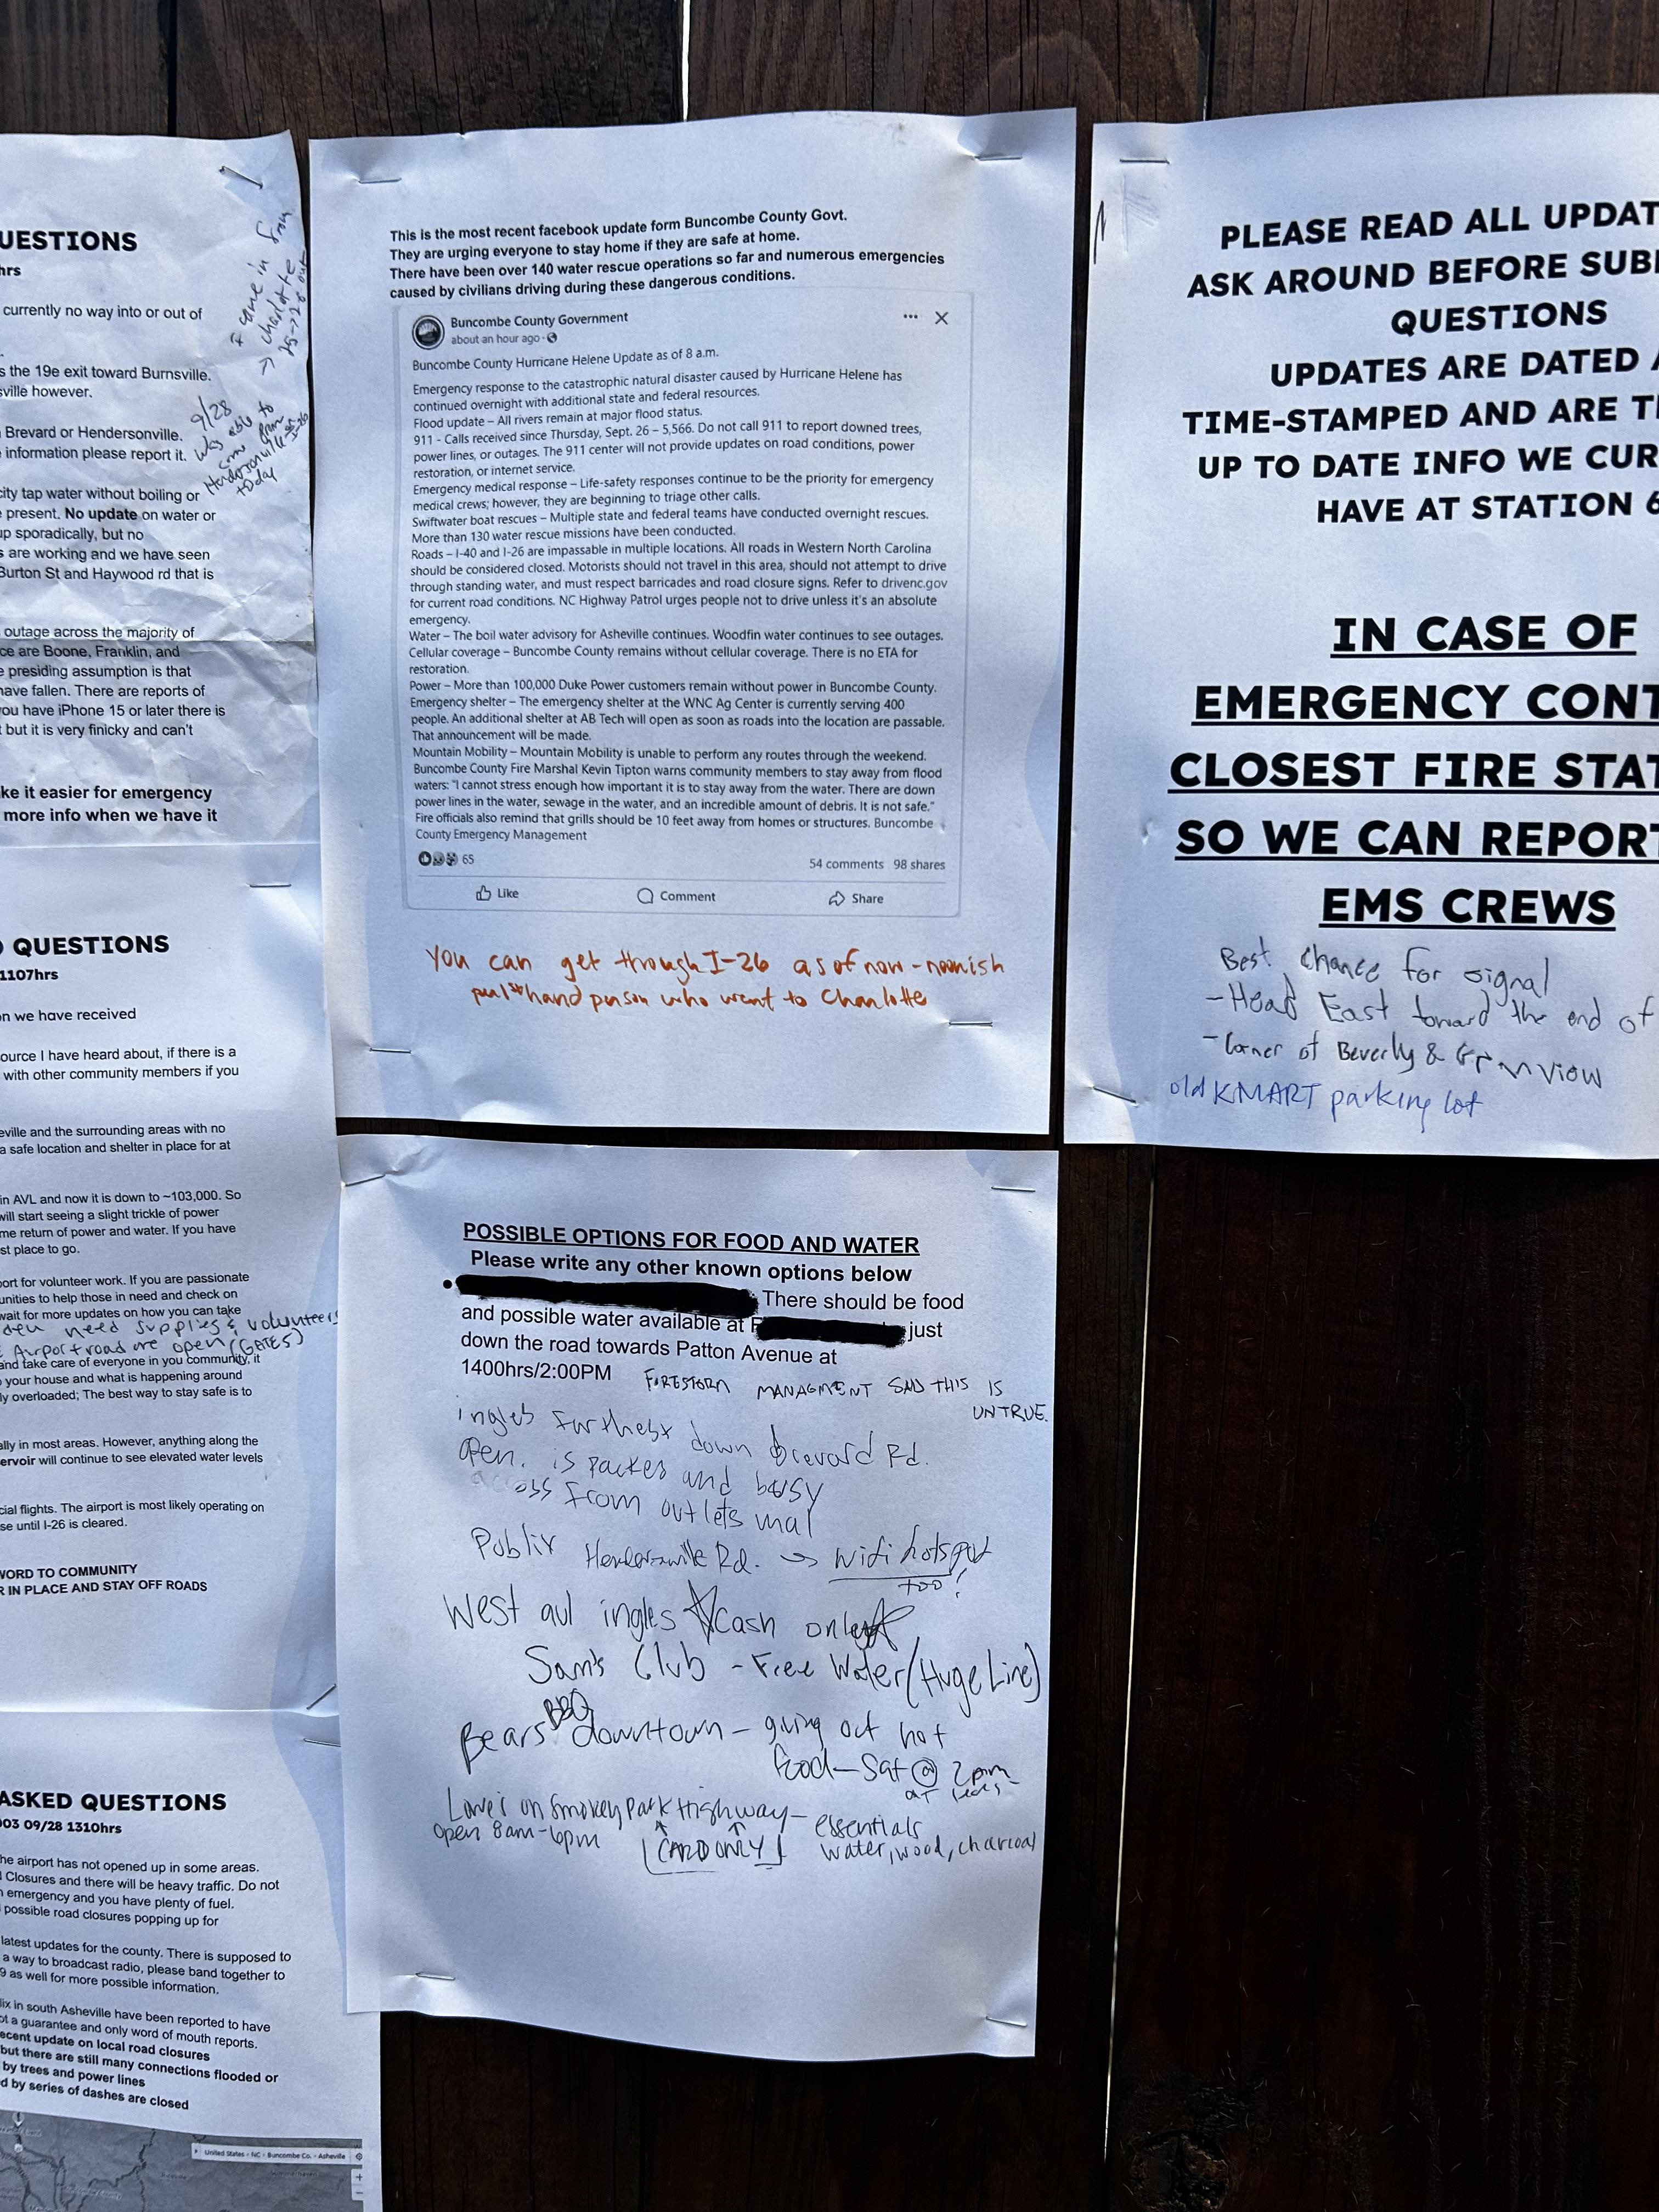 UESTIONS
hrs
currently no way into or out of
s the 19e exit toward Burnsville.
sville however.
Brevard or Hendersonville.
information please report it.
city tap water without boiling or
present. No update on water or
up sporadically, but no
s are working and we have seen
Burton St and Haywood rd that is
outage across the majority of
ce are Boone, Franklin, and
presiding assumption is that
have fallen. There are reports of
you have iPhone 15 or later there is
but it is very finicky and can't
ke it easier for emergency
more info when we have it
I came in from
→ charlotte
9/28
was able to
come from
Hendersonville
today
QUESTIONS
1107hrs
on we have received
source I have heard about, if there is a
with other community members if you
eville and the surrounding areas with no
a safe location and shelter in place for at
in AVL and now it is down to ~103,000. So
will start seeing a slight trickle of power
me return of power and water. If you have
st place to go.
port for volunteer work. If you are passionate
unities to help those in need and check on
wait for more updates on how you can take
need supplies & volunteers
Airport road are open (GATES)
and take care of everyone in your community, it
your house and what is happening around
ly overloaded; The best way to stay safe is to
ally in most areas. However, anything along the
ervoir will continue to see elevated water levels
cial flights. The airport is most likely operating on
se until I-26 is cleared.
WORD TO COMMUNITY
R IN PLACE AND STAY OFF ROADS
ASKED QUESTIONS
003 09/28 1310hrs
he airport has not opened up in some areas.
Closures and there will be heavy traffic. Do not
emergency and you have plenty of fuel.
possible road closures popping up for
latest updates for the county. There is supposed to
a way to broadcast radio, please band together to
9 as well for more possible information.
lix in south Asheville have been reported to have
ot a guarantee and only word of mouth reports.
ecent update on local road closures
but there are still many connections flooded or
by trees and power lines
d by series of dashes are closed
United States - NC - Buncombe Co. - Asheville
This is the most recent facebook update form Buncombe County Govt.
They are urging everyone to stay home if they are safe at home.
There have been over 140 water rescue operations so far and numerous emergencies
caused by civilians driving during these dangerous conditions.
Buncombe County Government
about an hour ago ·
Buncombe County Hurricane Helene Update as of 8 a.m.
Emergency response to the catastrophic natural disaster caused by Hurricane Helene has
continued overnight with additional state and federal resources.
Flood update – All rivers remain at major flood status.
911 - Calls received since Thursday, Sept. 26 – 5,566. Do not call 911 to report downed trees,
power lines, or outages. The 911 center will not provide updates on road conditions, power
restoration, or internet service.
Emergency medical response – Life-safety responses continue to be the priority for emergency
medical crews; however, they are beginning to triage other calls.
Swiftwater boat rescues – Multiple state and federal teams have conducted overnight rescues.
More than 130 water rescue missions have been conducted.
Roads – I-40 and I-26 are impassable in multiple locations. All roads in Western North Carolina
should be considered closed. Motorists should not travel in this area, should not attempt to drive
through standing water, and must respect barricades and road closure signs. Refer to drivenc.gov
for current road conditions. NC Highway Patrol urges people not to drive unless it's an absolute
emergency.
Water – The boil water advisory for Asheville continues. Woodfin water continues to see outages.
Cellular coverage – Buncombe County remains without cellular coverage. There is no ETA for
restoration.
Power – More than 100,000 Duke Power customers remain without power in Buncombe County.
Emergency shelter – The emergency shelter at the WNC Ag Center is currently serving 400
people. An additional shelter at AB Tech will open as soon as roads into the location are passable.
That announcement will be made.
Mountain Mobility – Mountain Mobility is unable to perform any routes through the weekend.
Buncombe County Fire Marshal Kevin Tipton warns community members to stay away from flood
waters: "I cannot stress enough how important it is to stay away from the water. There are down
power lines in the water, sewage in the water, and an incredible amount of debris. It is not safe."
Fire officials also remind that grills should be 10 feet away from homes or structures. Buncombe
County Emergency Management
65
54 comments 98 shares
Like Comment Share
You can get through I-26 as of now - noonish
per 1st hand person who went to Charlotte
POSSIBLE OPTIONS FOR FOOD AND WATER
Please write any other known options below
• There should be food
and possible water available at F just
down the road towards Patton Avenue at
1400hrs/2:00PM
MANAGMENT SAID THIS IS
UNTRUE.
ingles furthest down brevard Rd.
open. is packed and busy
across from outlets mal
Publix Hendersonville Rd. → wifi hotspot
too!
West avl ingles ☆Cash only☆
Sam's Club - Free Water (Huge Line)
Bears BBQ downtown - giving out hot
food - Sat @ 2pm
at least
Lowe's on Smokey Park Highway - essentials
open 8am-6pm water, wood, charcoal
CARD ONLY
PLEASE READ ALL UPDAT
ASK AROUND BEFORE SUB
QUESTIONS
UPDATES ARE DATED A
TIME-STAMPED AND ARE T
UP TO DATE INFO WE CUR
HAVE AT STATION 6
IN CASE OF
EMERGENCY CONT
CLOSEST FIRE STAT
SO WE CAN REPORT
EMS CREWS
Best chance for signal
- Head East toward the end of
- Corner of Beverly &
old KMART parking lot